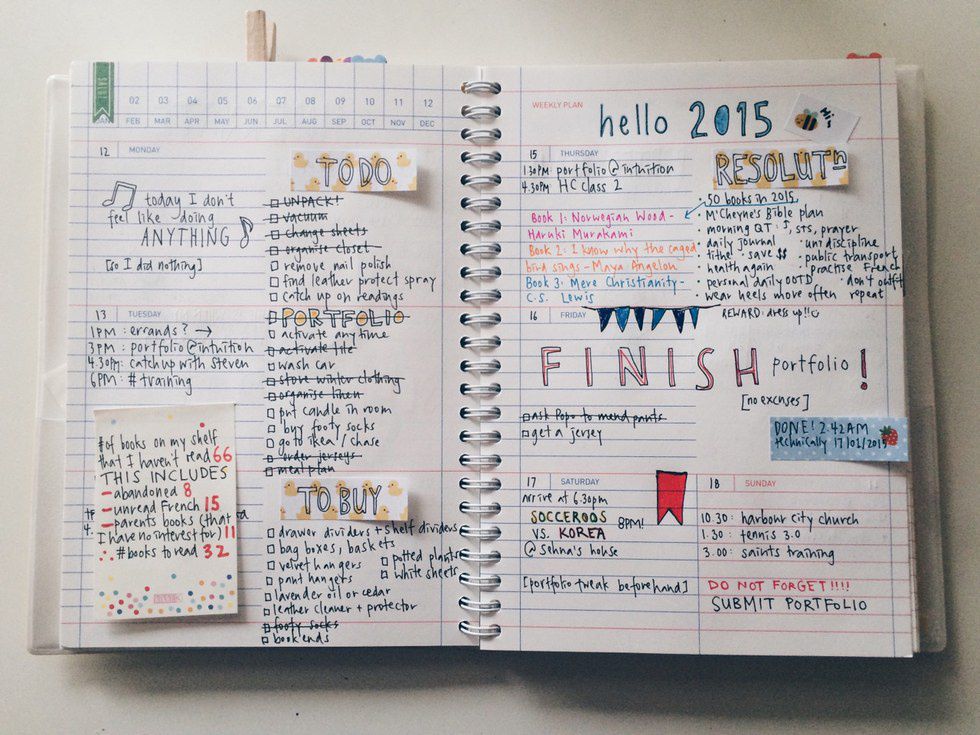 JAN
02 03 04 05 06 07 08 09 10 11 12
FEB MAR APR MAY JUN JUL AUG SEP OCT NOV DEC
12 MONDAY
today I don't
feel like doing
ANYTHING
[so I did nothing]
13 TUESDAY
1PM : errands? →
3PM : portfolio@intuition
4.30PM: catch up with Steven
6PM : # training
# of books on my shelf
that I haven't read 66
THIS INCLUDES
- abandoned 8
- unread French 15
- parents books (that
I have no interest for) 11
∴ # books to read 32
4.
TO DO
UNPACK!
vacuum
change sheets
organise closet
remove nail polish
find leather protect spray
catch up on readings
PORTFOLIO
activate anytime
activate lite
wash car
store winter clothing
organise linen
put candle in room
buy footy socks
go to ikea / chase
order jerseys
meal plan
TO BUY
drawer dividers + shelf dividers
bag boxes, baskets
velvet hangers
potted plants
pant hangers
white sheets
lavender oil or cedar
leather cleaner + protector
footy socks
book ends
WEEKLY PLAN
hello 2015
Hi~
15 THURSDAY
1.30PM portfolio@intuition
4.30PM HC class 2
Book 1: Norwegian Wood -
Haruki Murakami
Book 2: I know why the caged
bird sings - Maya Angelou
Book 3: Mere Christianity -
C.S. Lewis
RESOLUTn
· 50 books in 2015
· M'Cheyne's Bible plan
· morning QT: J, STS, prayer
· daily journal · uni discipline
· tithe · save $$ · public transport
· health again · practise French
· personal daily OOTD · don't outfit
· wear heels more often repeat
REWARD: dress up!!
16 FRIDAY
FINISH portfolio!
[no excuses]
ask Popo to mend pants
get a jersey
DONE! 2:42AM
technically 17/01/2015
17 SATURDAY
arrive at 6.30pm
SOCCEROOS
VS. KOREA 8PM!
@ Sohna's house
[portfolio tweak beforehand]
18 SUNDAY
10.30: harbour city church
1.30 : tennis 3.0
3.00: saints training
DO NOT FORGET!!!!
SUBMIT PORTFOLIO